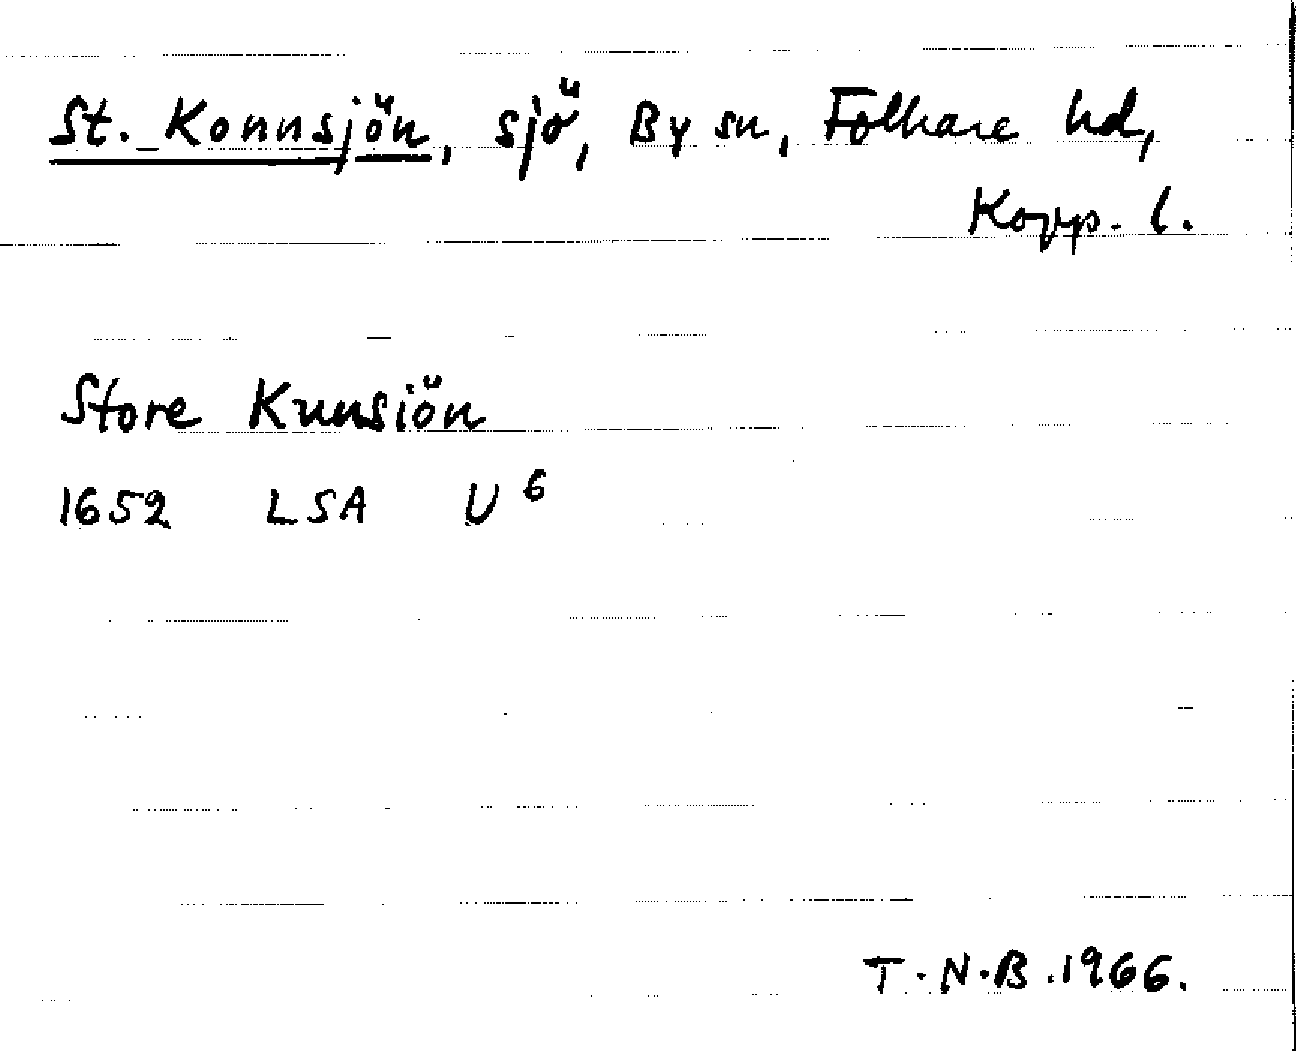 St. Konnsjön, sjö, By sn, Folkare hd,
Kopp. l.
Store Kunsiön
1652 LSA U⁶
T.N.B. 1966.